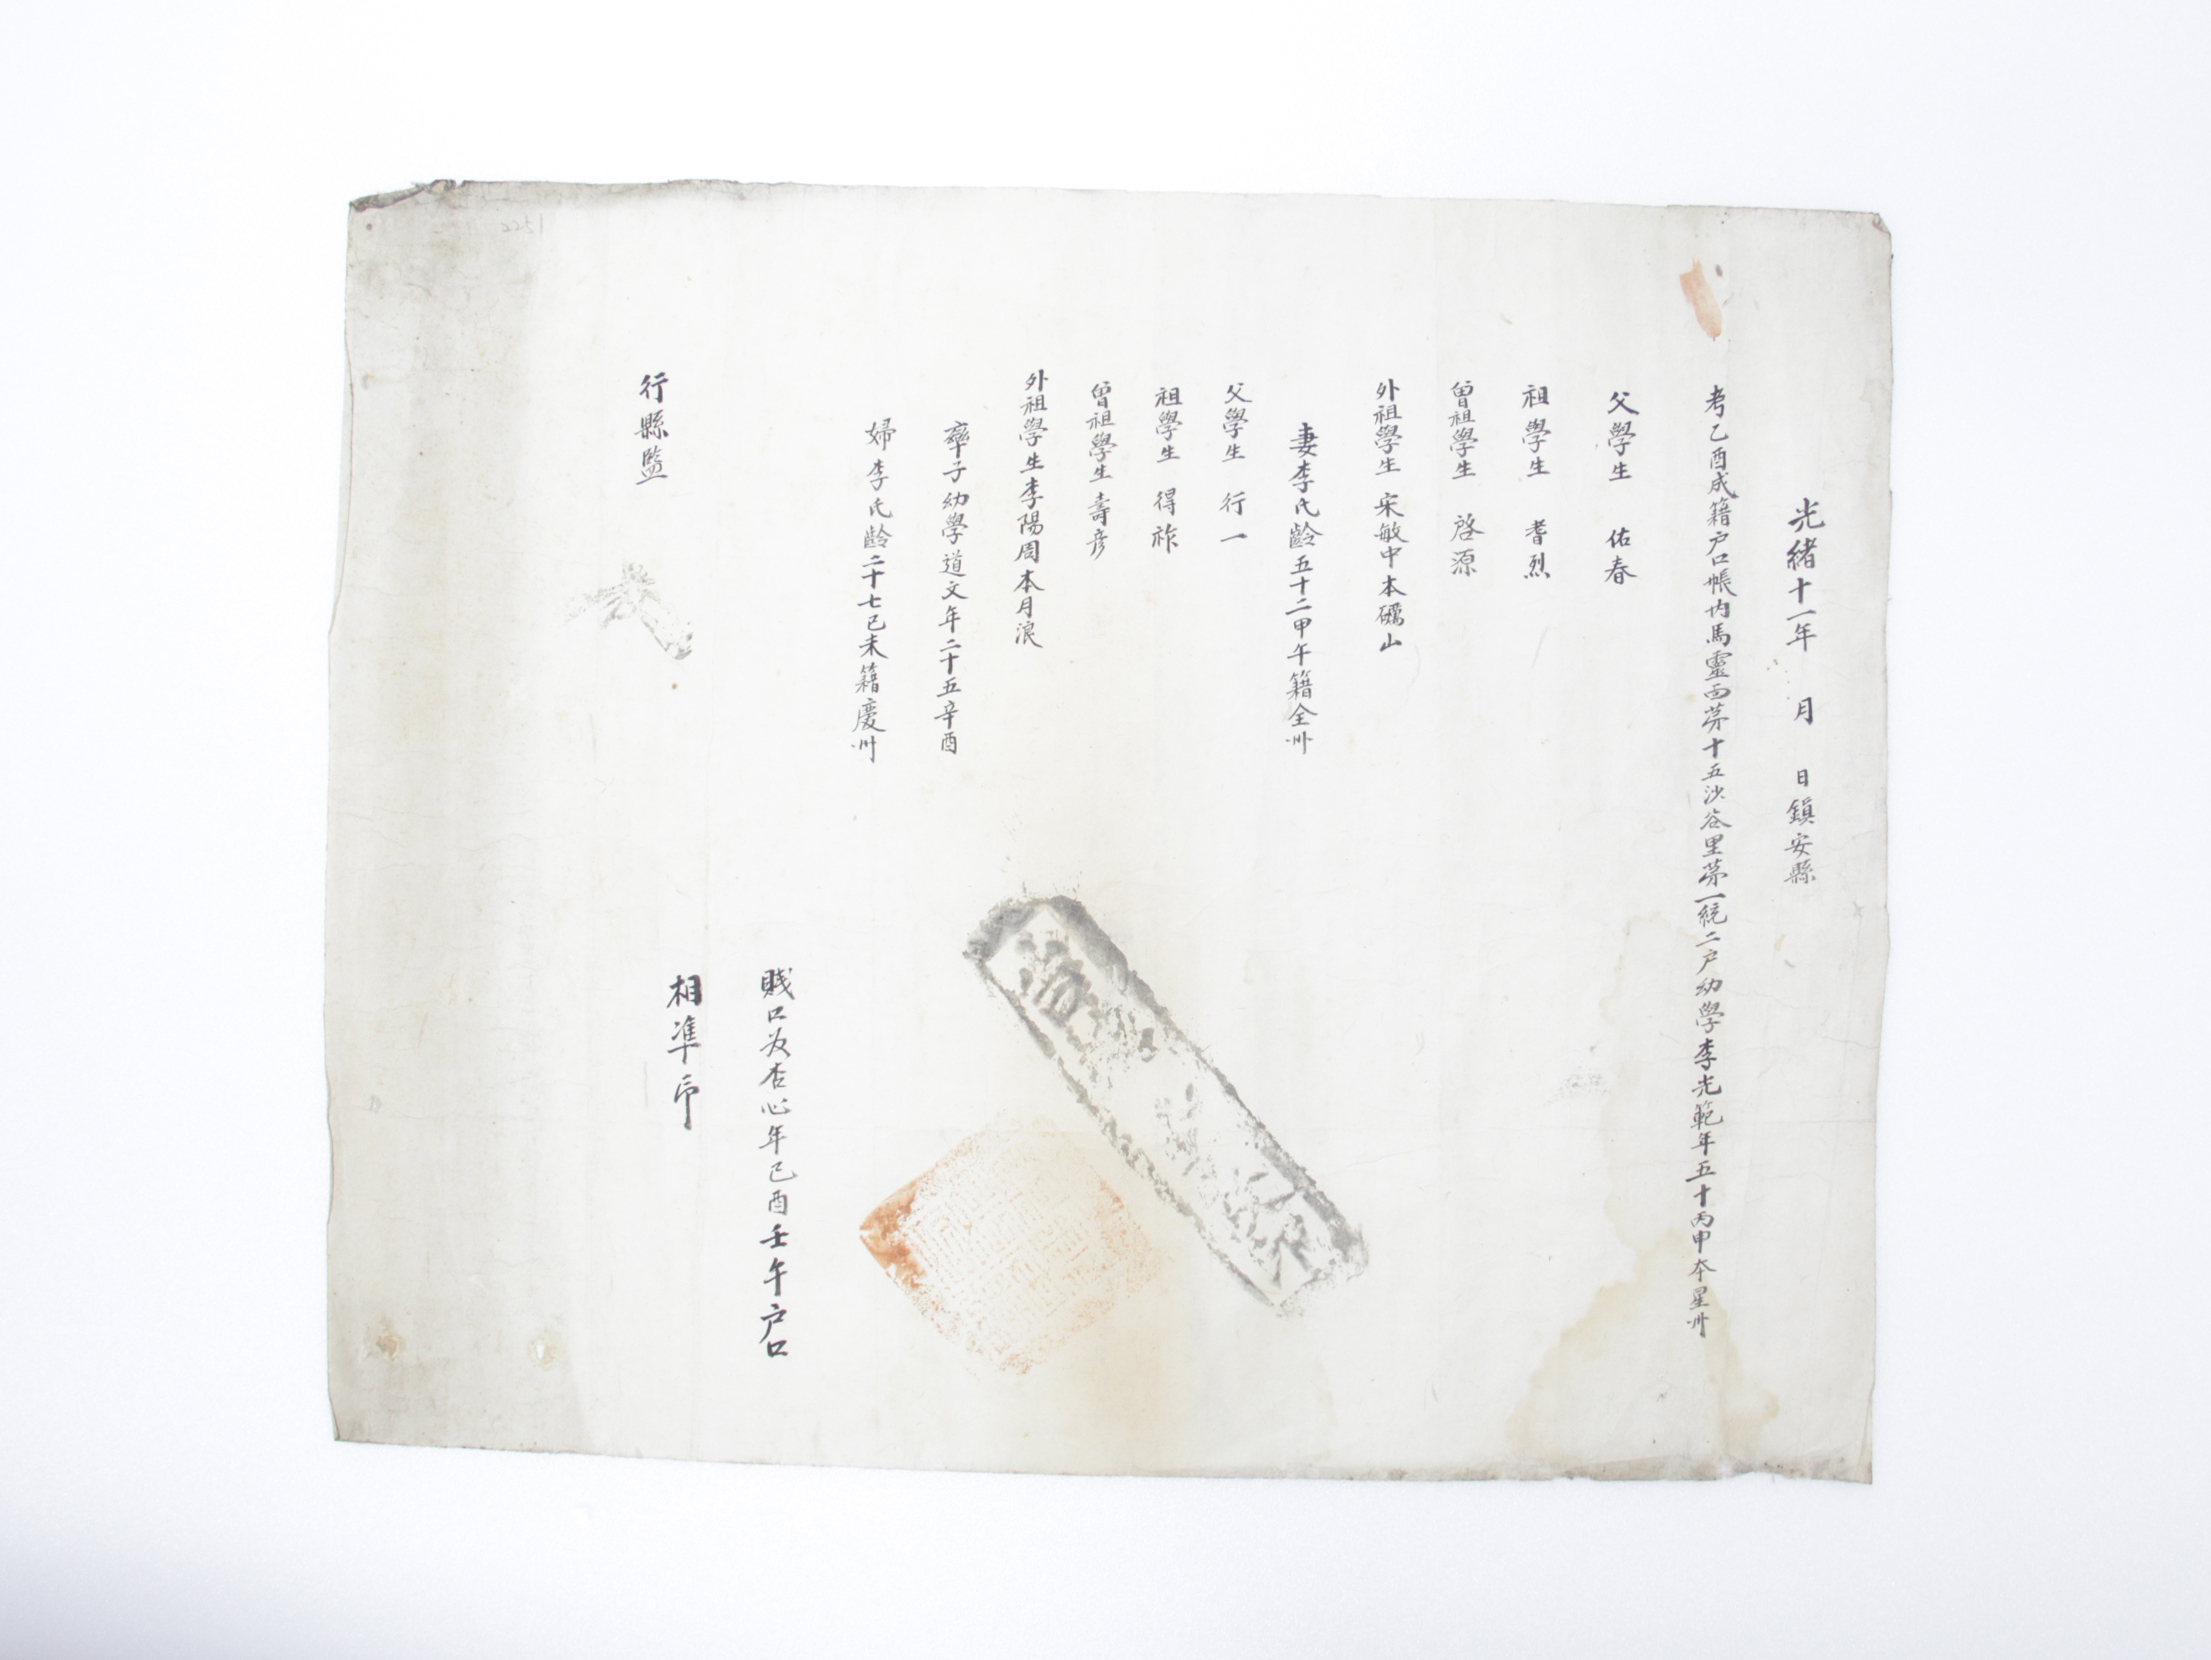 光緒十一年 月 日鎭安縣
考乙酉成籍户口帳內馬靈面苐十五沙谷里苐一統二户幼學李光範年五十丙申本星州
父學生 佑春
祖學生 耆烈
曾祖學生 啓源
外祖學生 宋敏中本礪山
妻李氏齡五十二甲午籍全州
父學生 行一
祖學生 得祚
曾祖學生 壽彦
外祖學生李陽周本月浪
率子幼學道文年二十五辛酉
婦李氏齡二十七己未籍慶州
賤口婢杏心年己酉壬午户口
相凖印
行縣監
2251